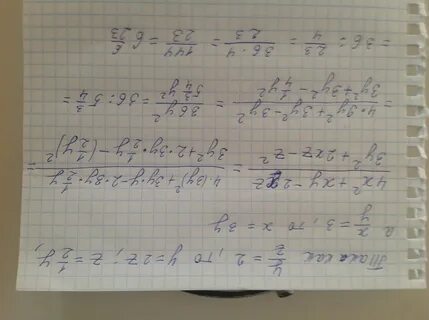 Так как y/z = 2, то y = 2z; z = 1/2 y,
а x/y = 3, то x = 3y
(4x² + xy - 2xz)/(3y² + 2xz - z²) = (4·(3y)² + 3y·y - 2·3y·1/2 y)/(3y² + 2·3y·1/2 y - (1/2 y)²) =
= (4·9y² + 3y² - 3y²)/(3y² + 3y² - 1/4 y²) = 36y²/(5 3/4 y²) = 36 : 5 3/4 =
= 36 : 23/4 = 36·4/23 = 144/23 = 6 6/23